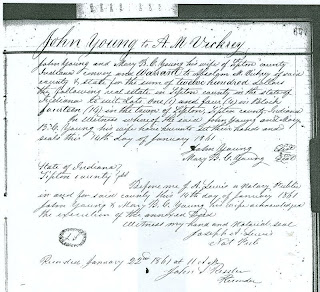 John Young to A. M. Vickrey
John Young and Mary B. C. Young his wife of Tipton county
Indiana convey and Warrant to Absolom M. Vickrey of said
county & state for the sum of twelve hundred dollars
the following real estate in Tipton county in the state of
Indiana to wit: Lots one (1) and four (4) in Block
fourteen (14) in the town of Tipton, Tipton county Indiana
In Witness whereof the said John Young and Mary
B. C. Young his wife have hereunto set their hands and
seals this 14th day of January 1861
John Young Seal
Mary B. C. Young Seal
State of Indiana
Tipton county
Before me J. A. Lewis a Notary Public
in and for said county this 14th day of January 1861
John Young & Mary B. C. Young his wife acknowledged
the execution of the annexed Deed
Witness my hand and Notarial seal
Joseph A. Lewis
Not Pub
Recorded January 22nd 1861 at 11 A.M.
John S.
Recorder